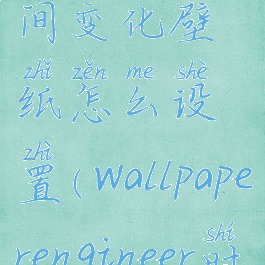 间变化壁
zhǐ zěn me shè
纸怎么设
zhì
置(wallpape
shí
rengineer时